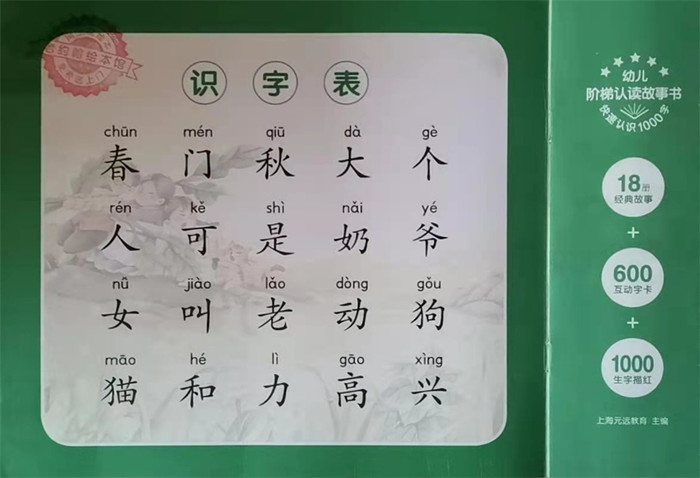 合约翰绘本馆
免费送上门
识字表
chūn mén qiū dà gè
春 门 秋 大 个
rén kě shì nǎi yé
人 可 是 奶 爷
nǚ jiào lǎo dòng gǒu
女 叫 老 动 狗
māo hé lì gāo xìng
猫 和 力 高 兴
幼儿
阶梯认读故事书
快速认识1000字
18册
经典故事
+
600
互动字卡
+
1000
生字描红
上海元远教育 主编